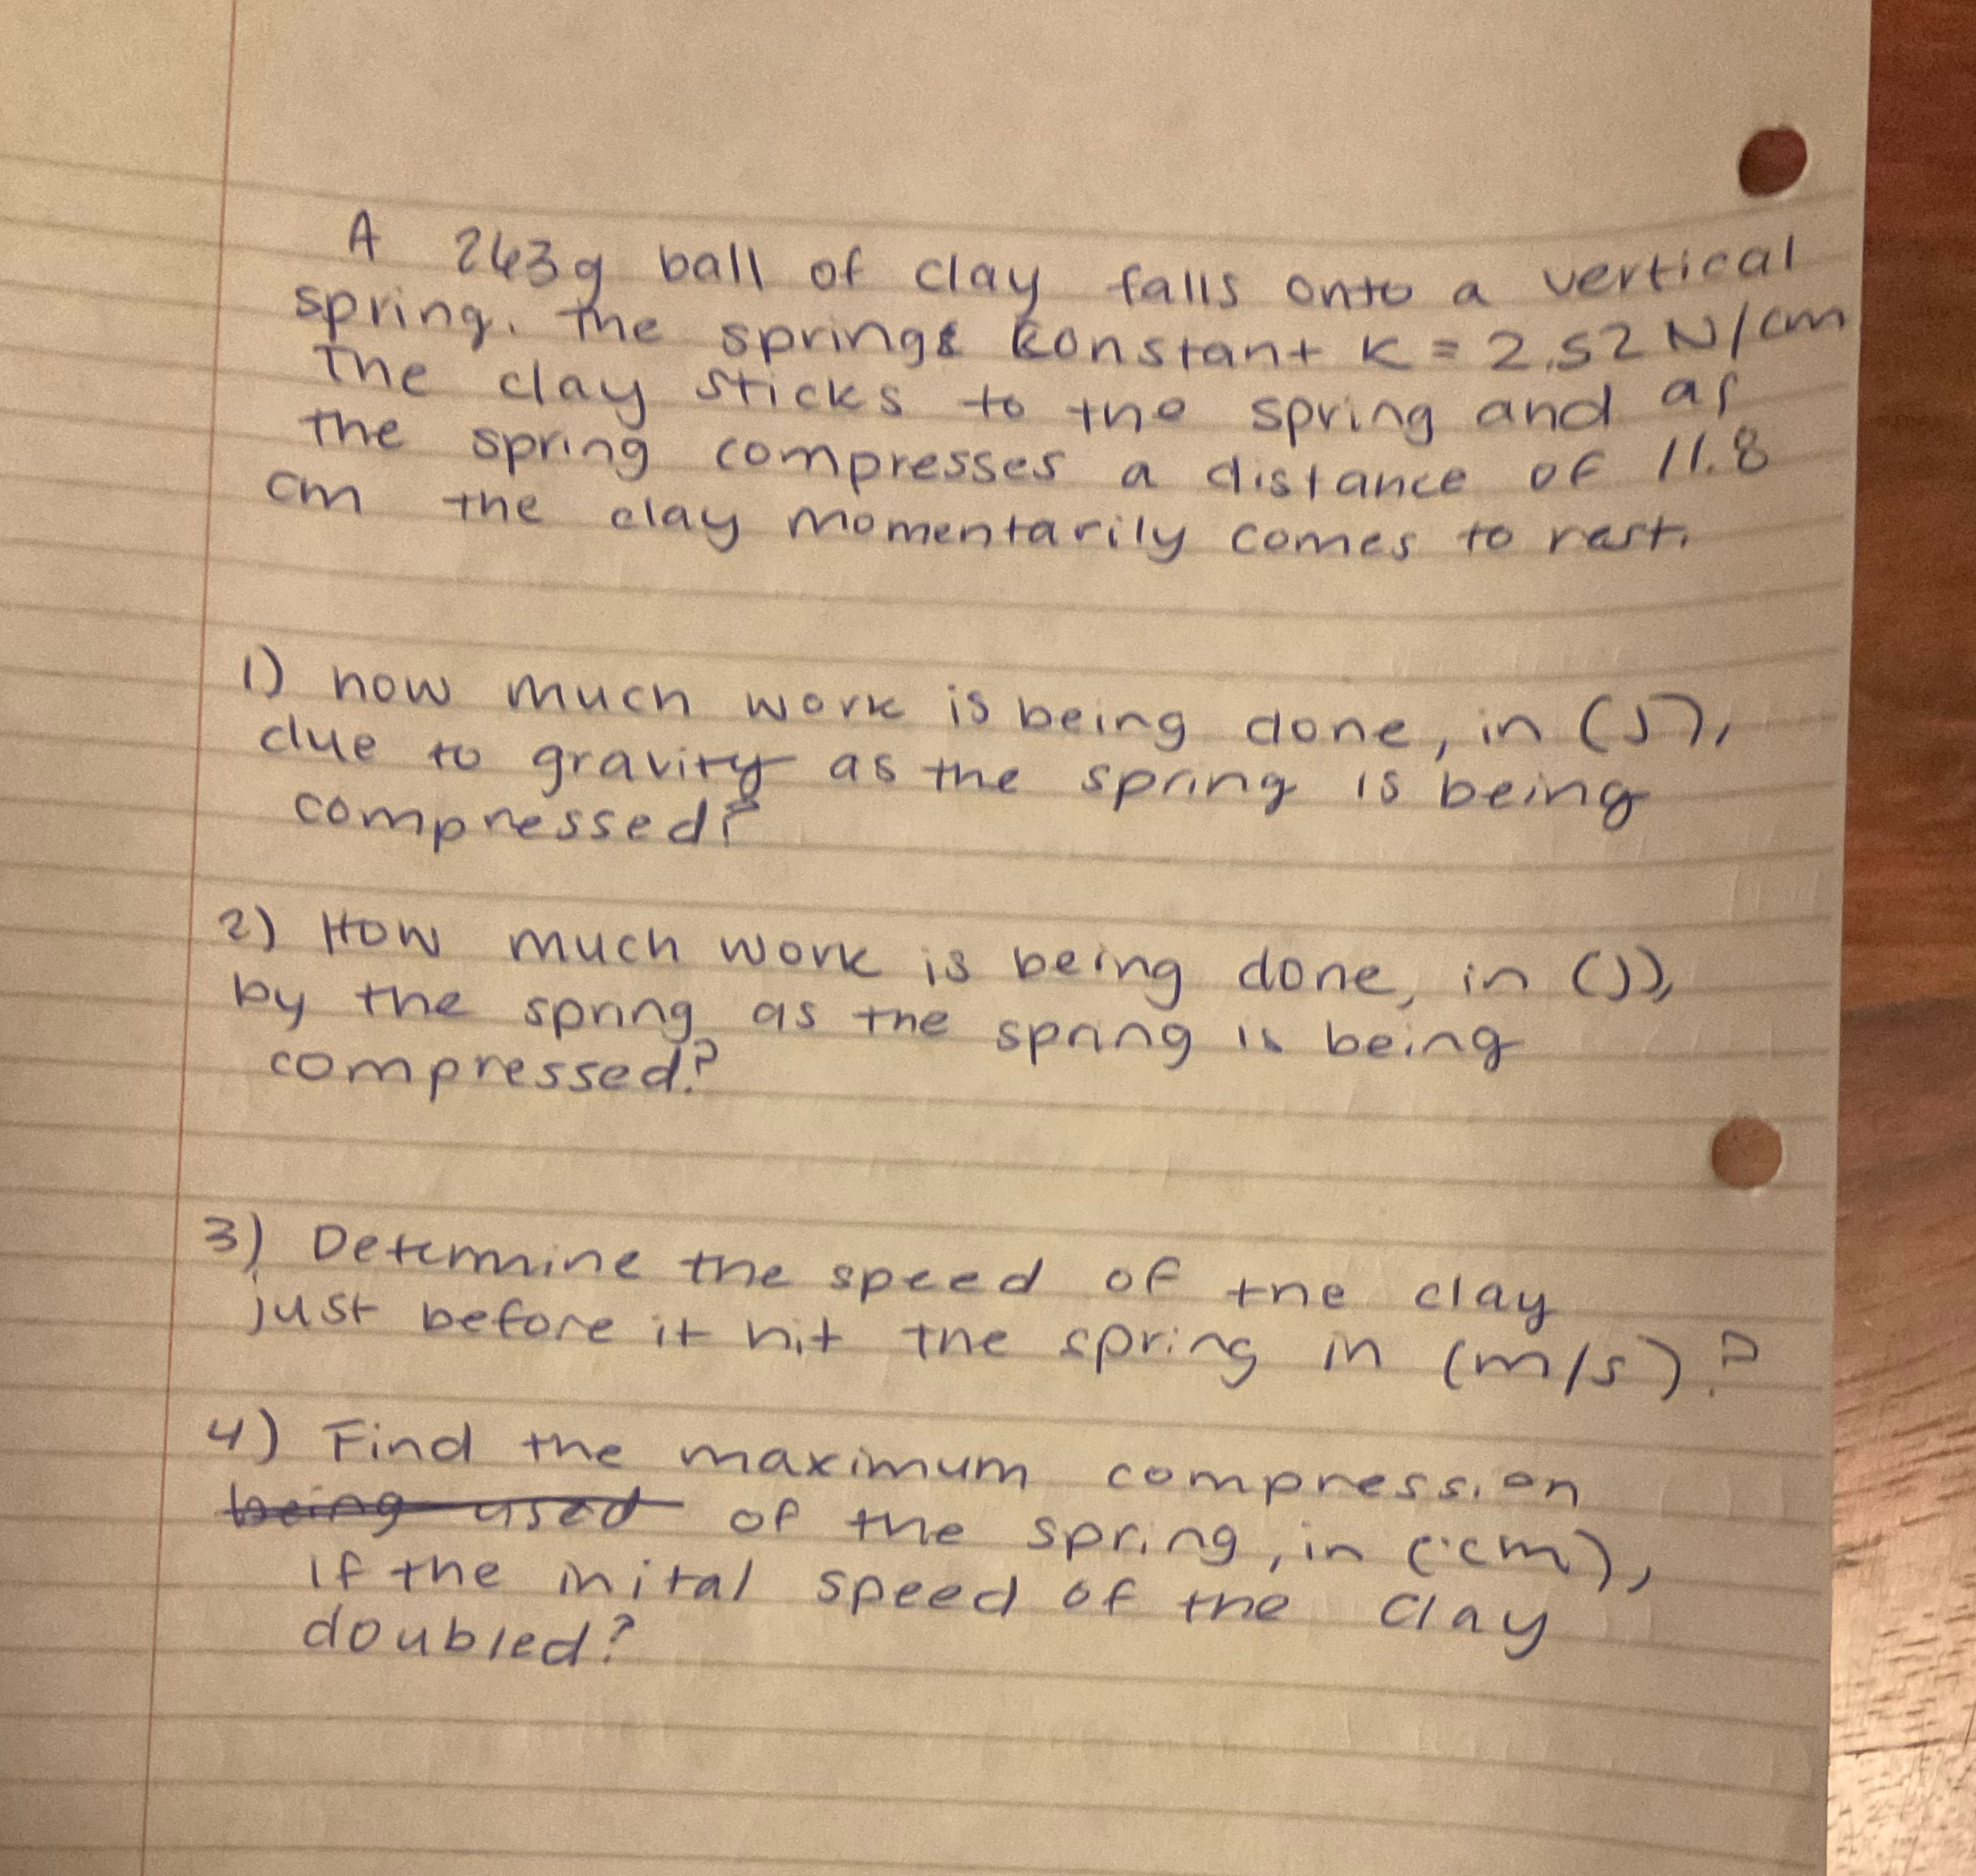 A 263g ball of clay falls onto a vertical
spring. The springs konstant K = 2.52 N/cm
The clay sticks to the spring and as
the spring compresses a distance of 11.8
cm the clay momentarily comes to rest.
1) how much work is being done, in (J),
due to gravity as the spring is being
compressed?
2) How much work is being done, in (J),
by the spring as the spring is being
compressed?
3) Determine the speed of the clay
just before it hit the spring in (m/s)?
4) Find the maximum compression
being used of the spring, in (cm),
if the inital speed of the clay
doubled?